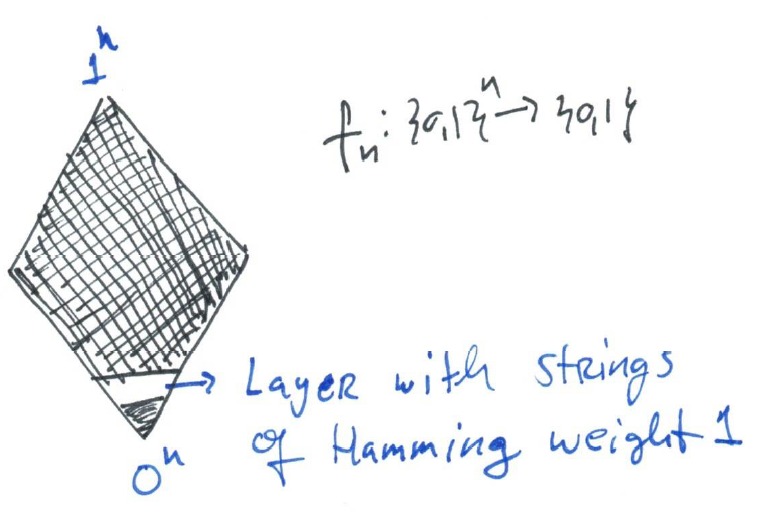 1ⁿ
fₙ: {0,1}ⁿ → {0,1}
→ Layer with strings
of Hamming weight 1
0ⁿ